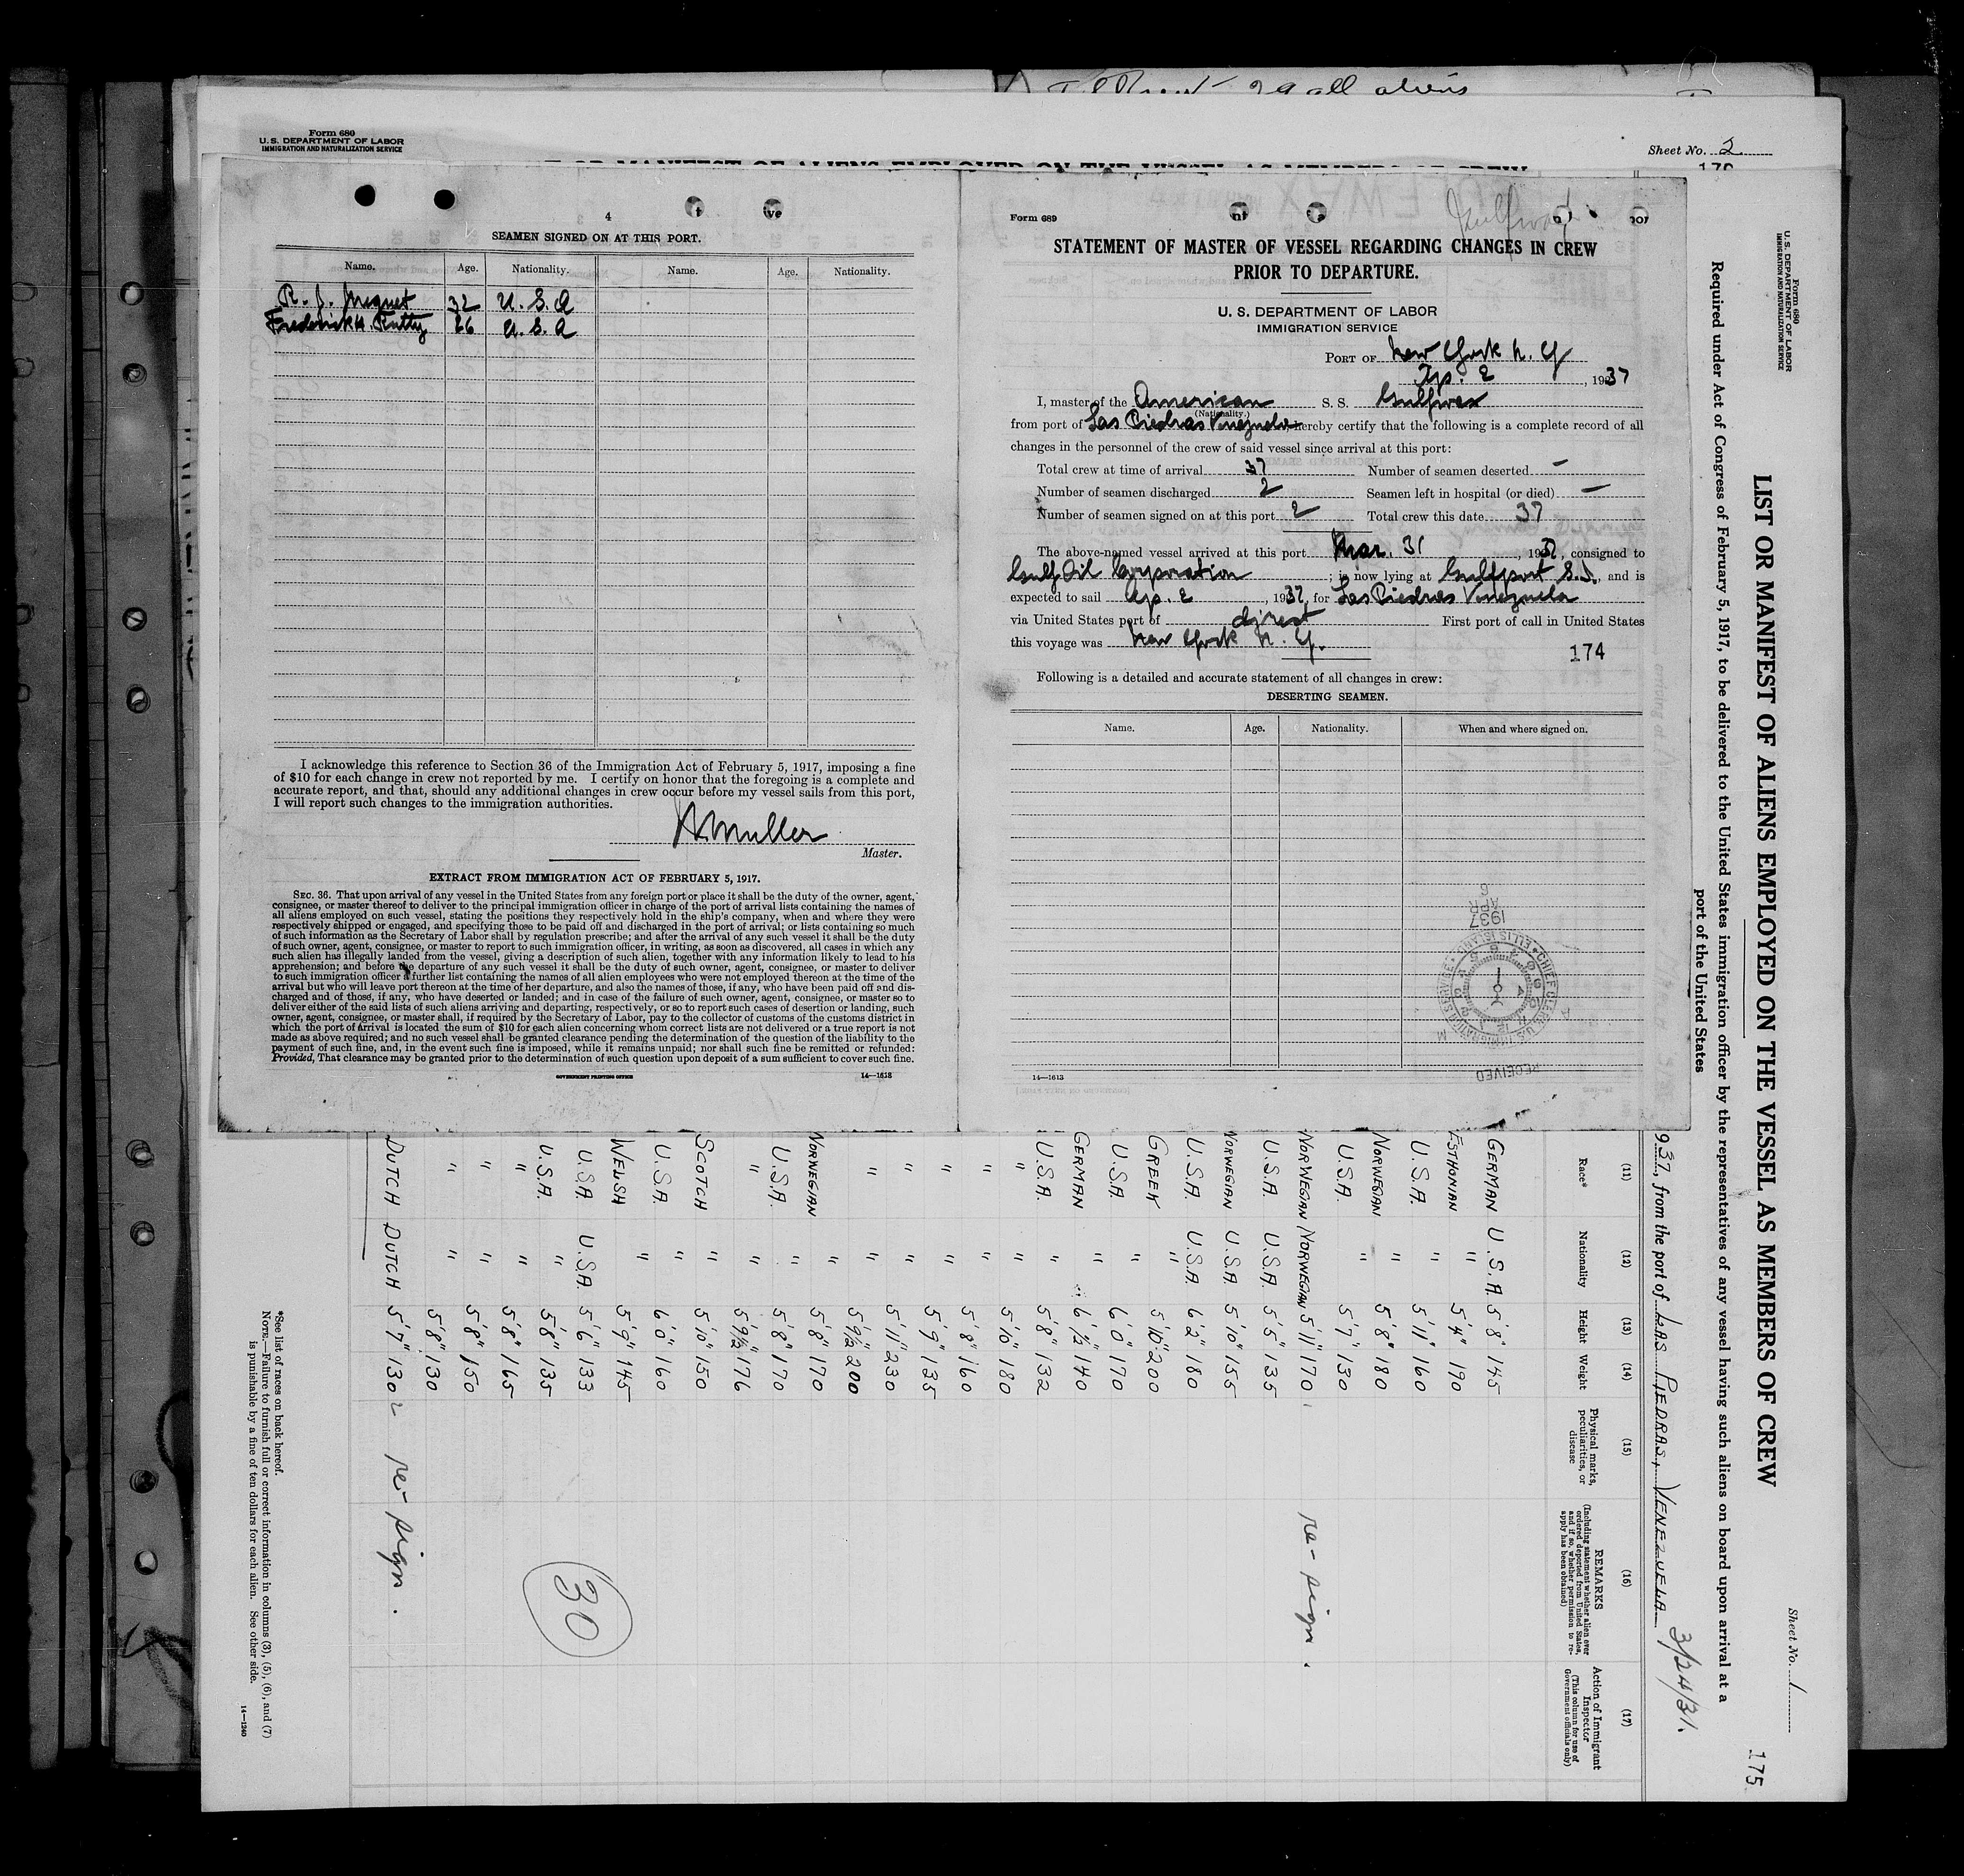 Form 680
U. S. DEPARTMENT OF LABOR
IMMIGRATION AND NATURALIZATION SERVICE
all aliens
Sheet No. 2
4
SEAMEN SIGNED ON AT THIS PORT.
Name. Age. Nationality. Name. Age. Nationality.
R. J. 32 U. S. A
Frederick 26 U. S. A
I acknowledge this reference to Section 36 of the Immigration Act of February 5, 1917, imposing a fine
of $10 for each change in crew not reported by me. I certify on honor that the foregoing is a complete and
accurate report, and that, should any additional changes in crew occur before my vessel sails from this port,
I will report such changes to the immigration authorities.
Muller
Master.
EXTRACT FROM IMMIGRATION ACT OF FEBRUARY 5, 1917.
SEC. 36. That upon arrival of any vessel in the United States from any foreign port or place it shall be the duty of the owner, agent,
consignee, or master thereof to deliver to the principal immigration officer in charge of the port of arrival lists containing the names of
all aliens employed on such vessel, stating the positions they respectively hold in the ship's company, when and where they were
respectively shipped or engaged, and specifying those to be paid off and discharged in the port of arrival; or lists containing so much
of such information as the Secretary of Labor shall by regulation prescribe; and after the arrival of any such vessel it shall be the duty
of such owner, agent, consignee, or master to report to such immigration officer, in writing, as soon as discovered, all cases in which any
such alien has illegally landed from the vessel, giving a description of such alien, together with any information likely to lead to his
apprehension; and before the departure of any such vessel it shall be the duty of such owner, agent, consignee, or master to deliver
to such immigration officer a further list containing the names of all alien employees who were not employed thereon at the time of the
arrival but who will leave port thereon at the time of her departure, and also the names of those, if any, who have been paid off and dis-
charged and of those, if any, who have deserted or landed; and in case of the failure of such owner, agent, consignee, or master so to
deliver either of the said lists of such aliens arriving and departing, respectively, or so to report such cases of desertion or landing, such
owner, agent, consignee, or master shall, if required by the Secretary of Labor, pay to the collector of customs of the customs district in
which the port of arrival is located the sum of $10 for each alien concerning whom correct lists are not delivered or a true report is not
made as above required; and no such vessel shall be granted clearance pending the determination of the question of the liability to the
payment of such fine, and, in the event such fine is imposed, while it remains unpaid; nor shall such fine be remitted or refunded:
Provided, That clearance may be granted prior to the determination of such question upon deposit of a sum sufficient to cover such fine.
GOVERNMENT PRINTING OFFICE 14—1613
Form 689
Gulfwax
STATEMENT OF MASTER OF VESSEL REGARDING CHANGES IN CREW
PRIOR TO DEPARTURE.
U. S. DEPARTMENT OF LABOR
IMMIGRATION SERVICE
PORT OF New York N. Y
Ap. 2, 1937
I, master of the American S. S. Gulfwax
(Nationality.)
from port of Las Piedras Venezuela hereby certify that the following is a complete record of all
changes in the personnel of the crew of said vessel since arrival at this port:
Total crew at time of arrival 37 Number of seamen deserted —
Number of seamen discharged 2 Seamen left in hospital (or died) —
Number of seamen signed on at this port 2 Total crew this date 37
The above-named vessel arrived at this port Mar. 31, 1937, consigned to
Gulf Oil Corporation; is now lying at Gulfport S.I., and is
expected to sail Ap. 2, 1937, for Las Piedras Venezuela
via United States port of direct First port of call in United States
this voyage was New York N. Y.
174
Following is a detailed and accurate statement of all changes in crew:
DESERTING SEAMEN.
Name. Age. Nationality. When and where signed on.
RECEIVED
CHIEF CLERK U.S. IMMIGRATION SERVICE ELLIS ISLAND
1937
APR
14—1613
Form 680
U. S. DEPARTMENT OF LABOR
IMMIGRATION AND NATURALIZATION SERVICE
Sheet No. 1
175
LIST OR MANIFEST OF ALIENS EMPLOYED ON THE VESSEL AS MEMBERS OF CREW
Required under Act of Congress of February 5, 1917, to be delivered to the United States immigration officer by the representatives of any vessel having such aliens on board upon arrival at a
port of the United States
937, from the port of LAS PIEDRAS, VENEZUELA 3/24/31.
(11) (12) (13) (14) (15) (16) (17)
Race* Nationality Height Weight Physical marks, peculiarities, or disease REMARKS (Including statement whether alien ever ordered deported from United States, and if so, whether permission to re-apply has been obtained) Action of Immigrant Inspector (This column for use of Government officials only)
GERMAN U.S.A 5'8" 145
ESTHONIAN " 5'4" 190
U.S.A. " 5'11" 160
NORWEGIAN " 5'8" 180
U.S.A. " 5'7" 130
NORWEGIAN NORWEGIAN 5'11" 170 1 re-sign.
U.S.A. U.S.A. 5'5" 135
NORWEGIAN U.S.A. 5'10" 155
U.S.A. U.S.A. 6'2" 180
GREEK " 5'10" 200
U.S.A. " 6'0" 170
GERMAN " 6'½" 140
U.S.A. " 5'8" 132
" " 5'10" 180
" " 5'8" 160
" " 5'9" 135
" " 5'11" 230
" " 5'9½" 200
NORWEGIAN " 5'8" 170
U.S.A. " 5'8" 170
" " 5'9½" 176
SCOTCH " 5'10" 150
U.S.A. " 6'0" 160
WELSH " 5'9" 145
U.S.A. U.S.A. 5'6" 133
U.S.A. " 5'8" 135
" " 5'8" 165
" " 5'8" 150
" " 5'8" 130
DUTCH DUTCH 5'7" 130 2 re-sign.
30
*See list of races on back hereof.
NOTE.—Failure to furnish full or correct information in columns (3), (5), (6), and (7)
is punishable by a fine of ten dollars for each alien. See other side.
14—1240